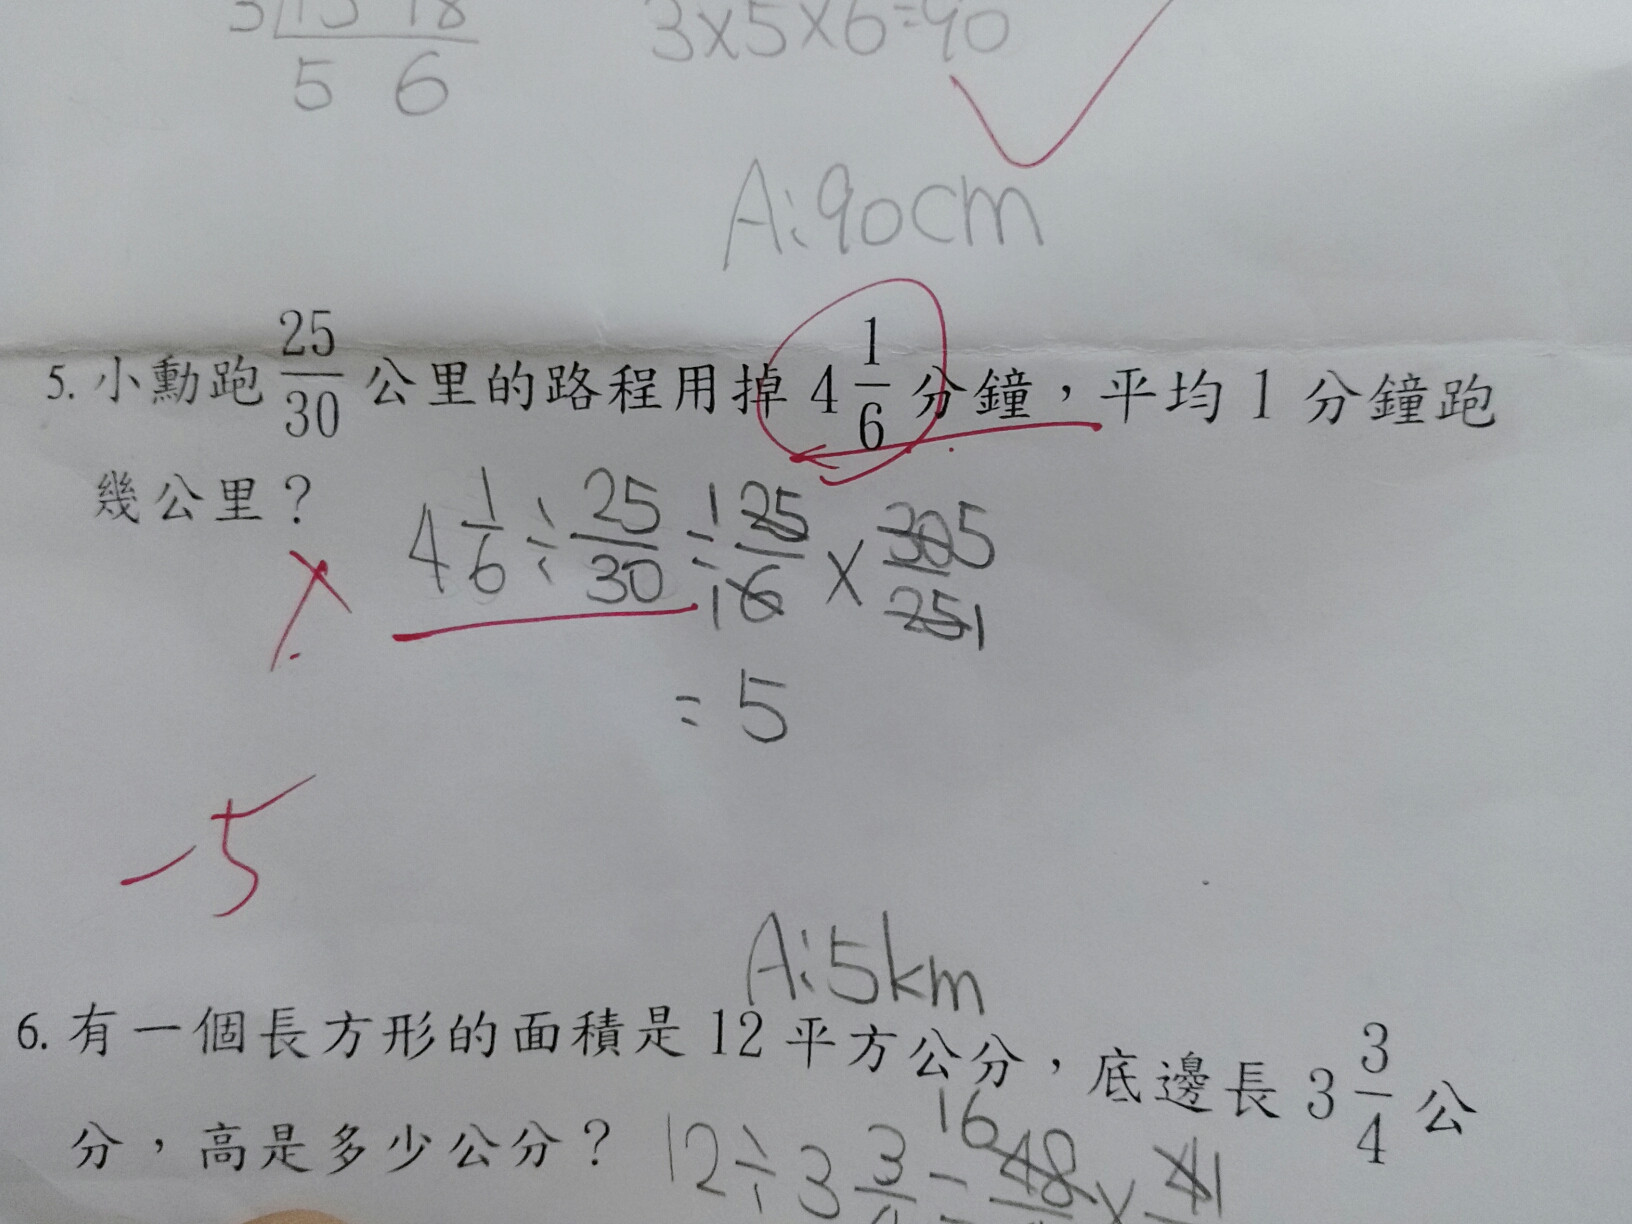 3 15 18
5 6
3×5×6=90
A:90cm
5. 小勳跑 25/30 公里的路程用掉 4 1/6 分鐘，平均 1 分鐘跑
幾公里？
4 1/6 ÷ 25/30 = 25/6 × 30/25
1 1 5 1
= 5
-5
A:5km
6. 有一個長方形的面積是 12 平方公分，底邊長 3 3/4 公
分，高是多少公分？
12÷3 3/4 = 48 × 4
16 1